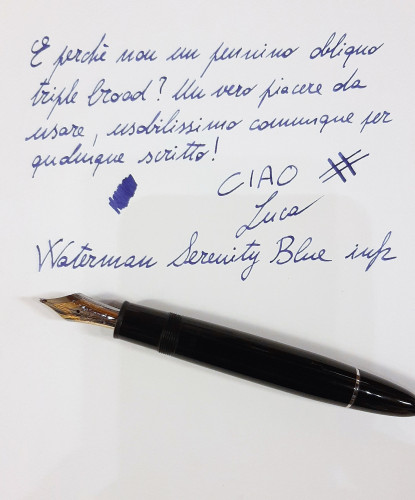 E perchè non un pennino obliquo
triple broad? Un vero piacere da
usare, usabilissimo comunque per
qualunque scritto!
CIAO #
Luca
Waterman Serenity Blue ink